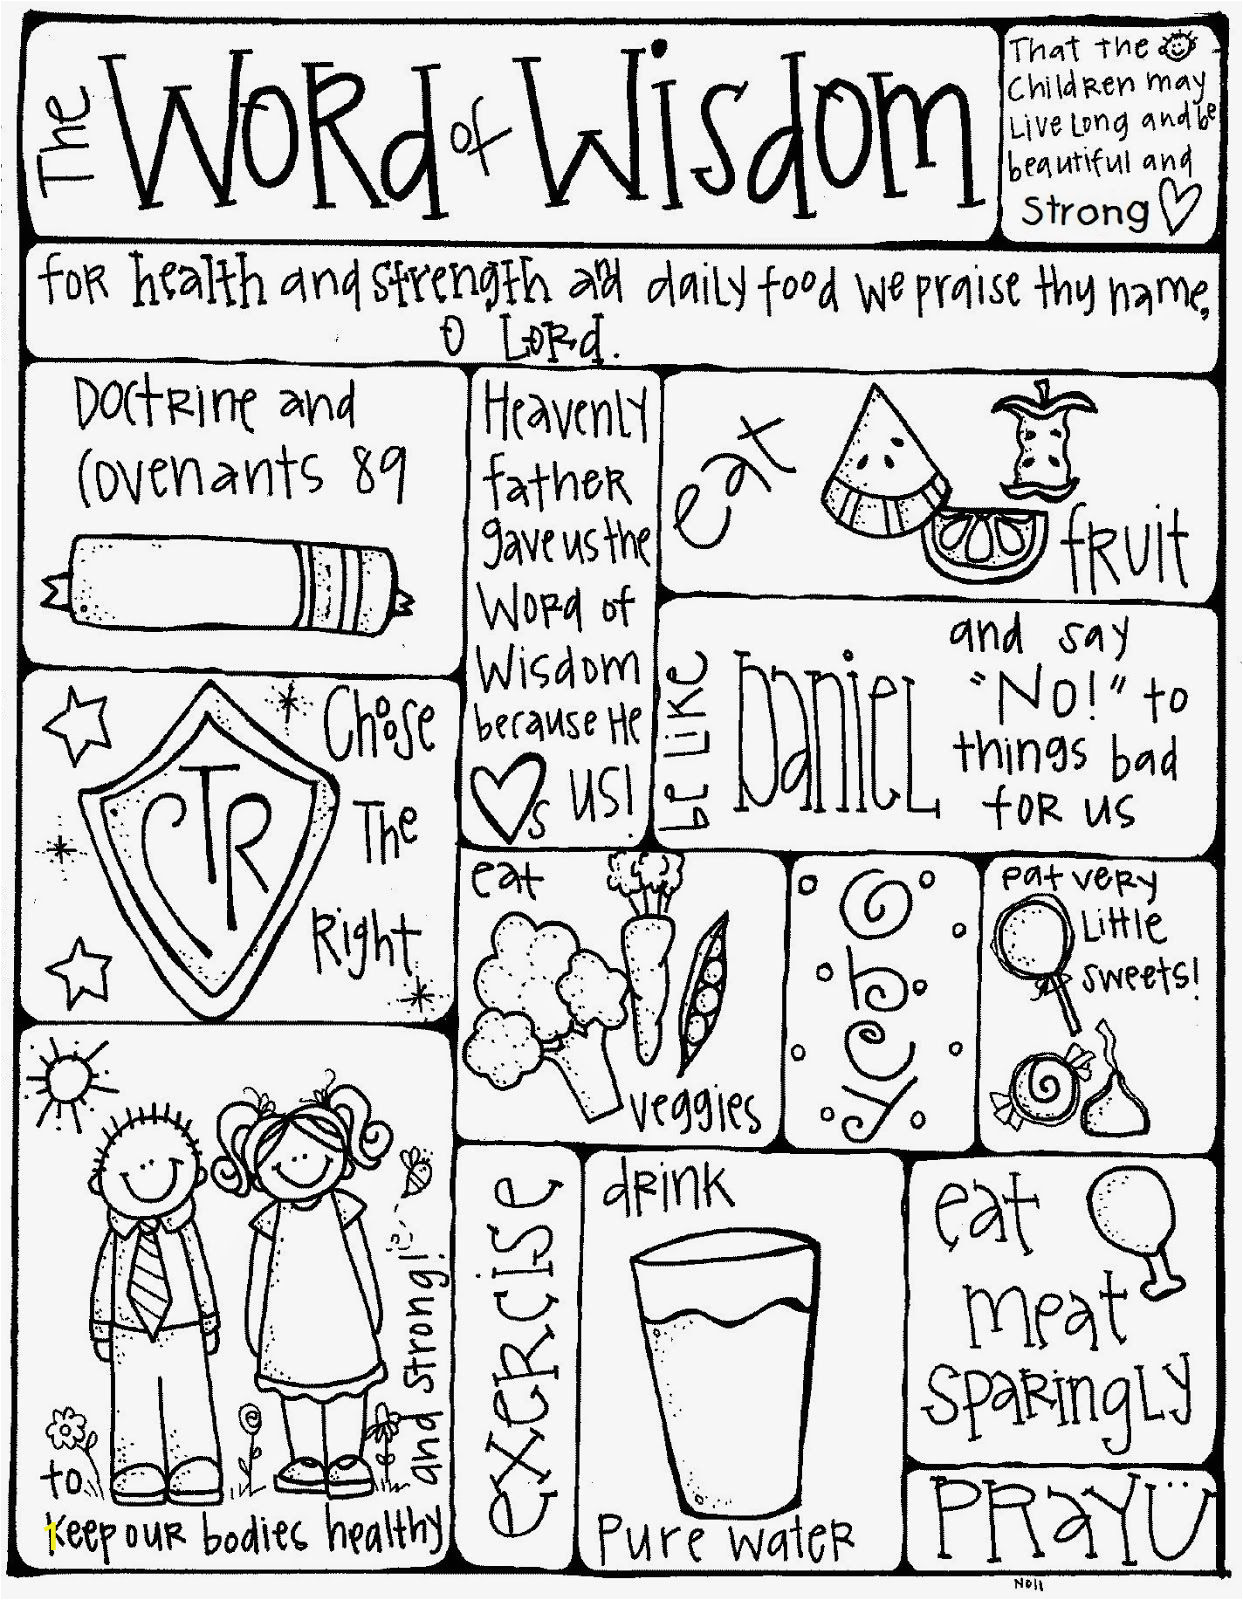 The Word of Wisdom
That the
Children may
Live Long and be
beautiful and
Strong
for health and strength and daily food we praise thy name,
O Lord.
Doctrine and
Covenants 89
Heavenly
father
gave us the
Word of
Wisdom
because He
s us!
eat
fruit
be like Daniel
and say
"No!" to
things bad
for us
CTR
Choose
The
Right
eat
veggies
yerg
eat very
Little
sweets!
to
keep our bodies healthy
and strong!
exercise
drink
Pure water
eat
meat
sparingly
PRAY